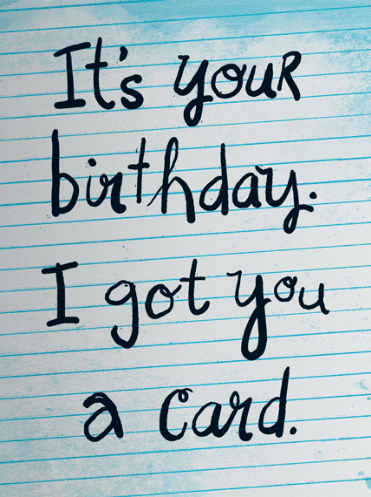 It's your
birthday.
I got you
a card.